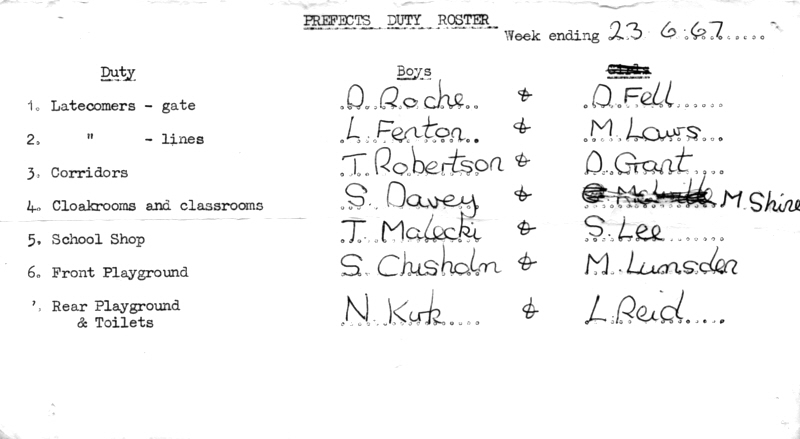 PREFECTS DUTY ROSTER
Week ending 23 6.67
Duty Boys
1. Latecomers - gate D. Roche & D. Fell
2. " - lines L. Fenton & M. Laws
3. Corridors T. Robertson & D. Grant
4. Cloakrooms and classrooms S. Davey & M. Shire
5. School Shop T. Malecki & S. Lee
6. Front Playground S. Chisholm & M. Lumsden
7. Rear Playground N. Kirk & L. Reid
& Toilets